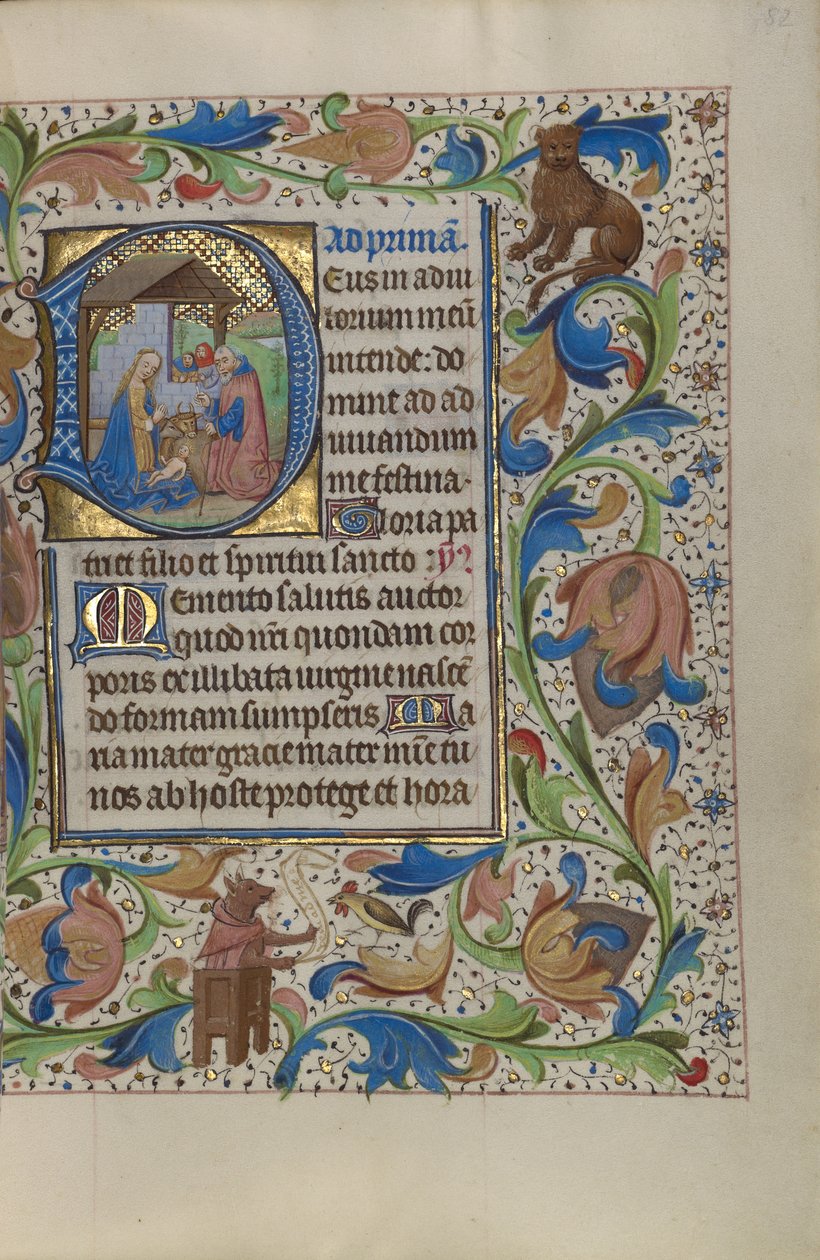 82
Ad primā.
Deus in adiu
torium meū
intende: do
mine ad ad
iuuandum
me festina.
Gloria pa
tri et filio et spiritui sancto : ym̄
Memento salutis auctor
quod nr̄i quondam cor
poris ex illibata uirgine nascē
do formam sumpseris Ma
ria mater gracie mater mīe tu
nos ab hoste protege et hora